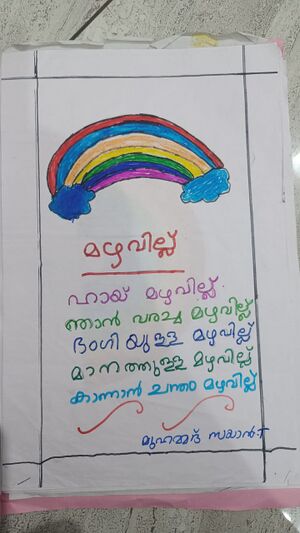 മഴവില്ല്
ഹായ് മഴവില്ല്
ഞാൻ വരച്ച മഴവില്ല്
ഭംഗിയുള്ള മഴവില്ല്
മാനത്തുള്ള മഴവില്ല്
കാണാൻ ചന്തം മഴവില്ല്
മുഹമ്മദ് സയാൻ.T